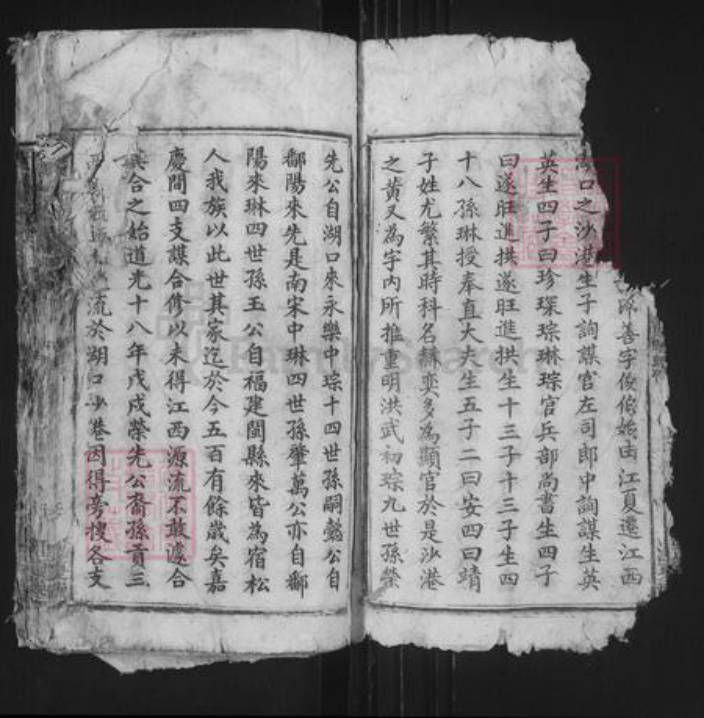 諱善字俊伯始由江夏遷江西
湖口之沙港生子詢謀官左司郎中詢謀生英
英生四子曰珍琛琮琳琮官兵部尚書生四子
曰遂旺進拱遂旺進拱生十三子十三子生四
十八孫琳授奉直大夫生五子二曰安四曰靖
子姓尤繁其時科名赫奕多為顯官於是沙港
之黄又為宇内所推重明洪武初琮九世孫榮
先公自湖口來永樂中琮十四世孫嗣懿公自
鄱陽來先是南宋中琳四世孫肇萬公亦自鄱
陽來琳四世孫玉公自福建閩縣來皆為宿松
人我族以此世其家迄於今五百有餘歲矣嘉
慶間四支謀合修以未得江西源流不敢遽合
其合之始道光十八年戊戌榮先公裔孫貢三
流於湖口沙港因得旁搜各支
FamilySearch